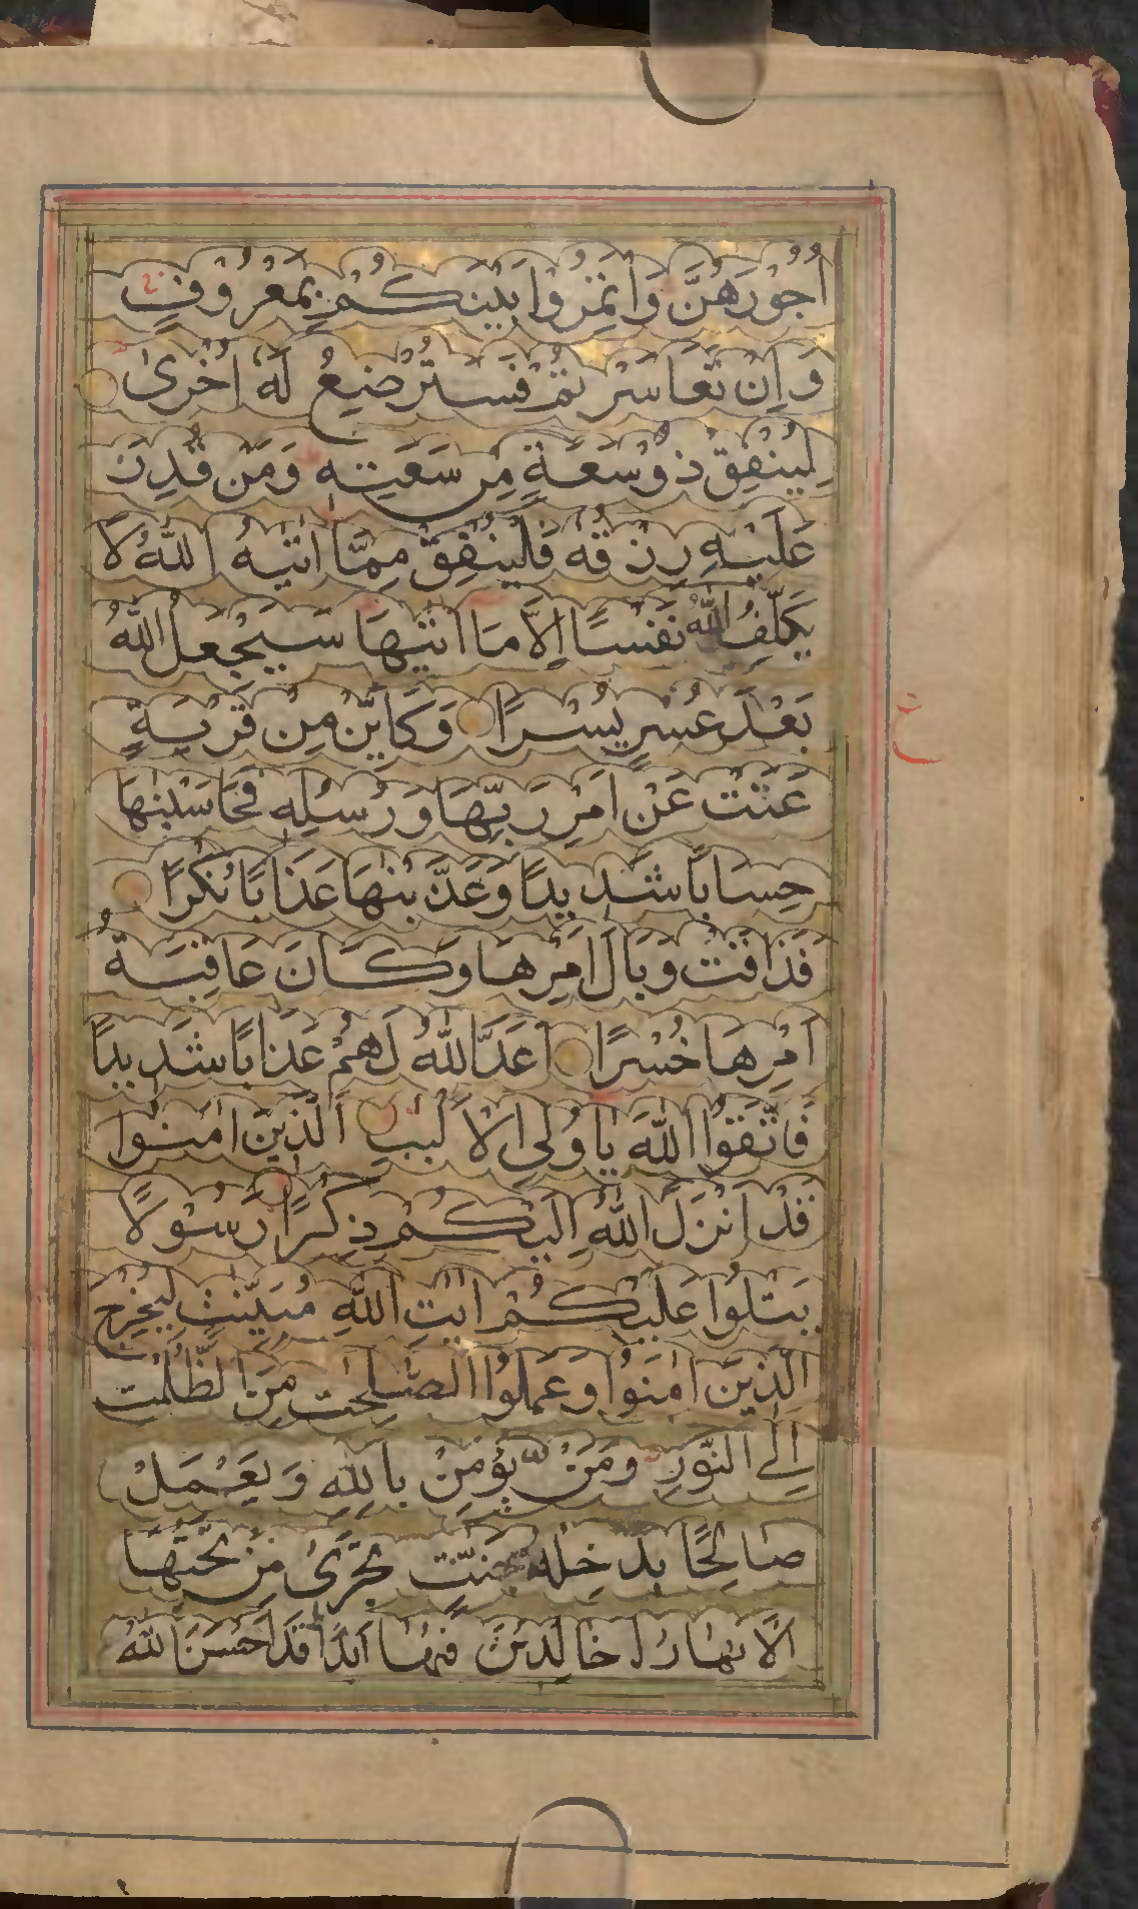 اُجُوْرَهُنَّ وَاْتَمِرُوْا بَيْنَكُمْ بِمَعْرُوْفٍ
وَاِنْ تَعَاسَرْتُمْ فَسَتُرْضِعُ لَهٗ اُخْرٰى
لِيُنْفِقْ ذُوْسَعَةٍ مِنْ سَعَتِهٖ وَمَنْ قُدِرَ
عَلَيْهِ رِزْقُهٗ فَلْيُنْفِقْ مِمَّا اٰتٰيهُ اللّٰهُ لَا
يُكَلِّفُ اللّٰهُ نَفْسًا اِلَّا مَا اٰتٰيهَا سَيَجْعَلُ اللّٰهُ
بَعْدَ عُسْرٍ يُسْرًا وَكَاَيِّنْ مِنْ قَرْيَةٍ
عَتَتْ عَنْ اَمْرِ رَبِّهَا وَرُسُلِهٖ فَحَاسَبْنٰهَا
حِسَابًا شَدِيْدًا وَعَذَّبْنٰهَا عَذَابًا نُكْرًا
فَذَاقَتْ وَبَالَ اَمْرِهَا وَكَانَ عَاقِبَةُ
اَمْرِهَا خُسْرًا اَعَدَّ اللّٰهُ لَهُمْ عَذَابًا شَدِيْدًا
فَاتَّقُوا اللّٰهَ يٰاُولِي الْاَلْبٰبِ الَّذِيْنَ اٰمَنُوْا
قَدْ اَنْزَلَ اللّٰهُ اِلَيْكُمْ ذِكْرًا رَسُوْلًا
يَتْلُوْا عَلَيْكُمْ اٰيٰتِ اللّٰهِ مُبَيِّنٰتٍ لِيُخْرِجَ
الَّذِيْنَ اٰمَنُوْا وَعَمِلُوا الصّٰلِحٰتِ مِنَ الظُّلُمٰتِ
اِلَى النُّوْرِ وَمَنْ يُؤْمِنْ بِاللّٰهِ وَيَعْمَلْ
صَالِحًا يُدْخِلْهُ جَنّٰتٍ تَجْرِيْ مِنْ تَحْتِهَا
الْاَنْهَارُ خَالِدِيْنَ فِيْهَا اَبَدًا قَدْ اَحْسَنَ اللّٰهُ
ع